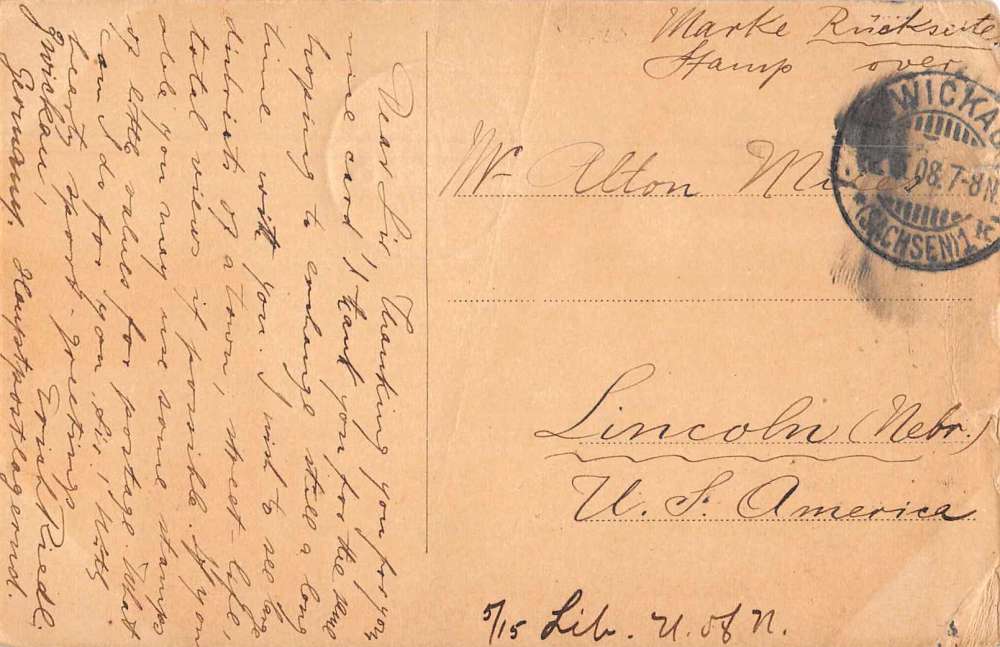 Marke Rückseite
Stamp over
WICKAU
08.7-8N.
(SACHSEN)1
Mr Alton
Lincoln (Nebr.)
U. S. America
5/15 Lib. U. of N.
Dear Sir! Thanking you for your
nice card I thank you for the
hoping to exchange still a long
time with you. I wish to see large
districts of a town, street-life,
total views if possible. If you
able you may use some stamps
of little values for postage. What
can I do for you, Sir? With
hearty sport-greetings
Zwickau, Erich Riedl.
Germany. Hauptpostlagernd.